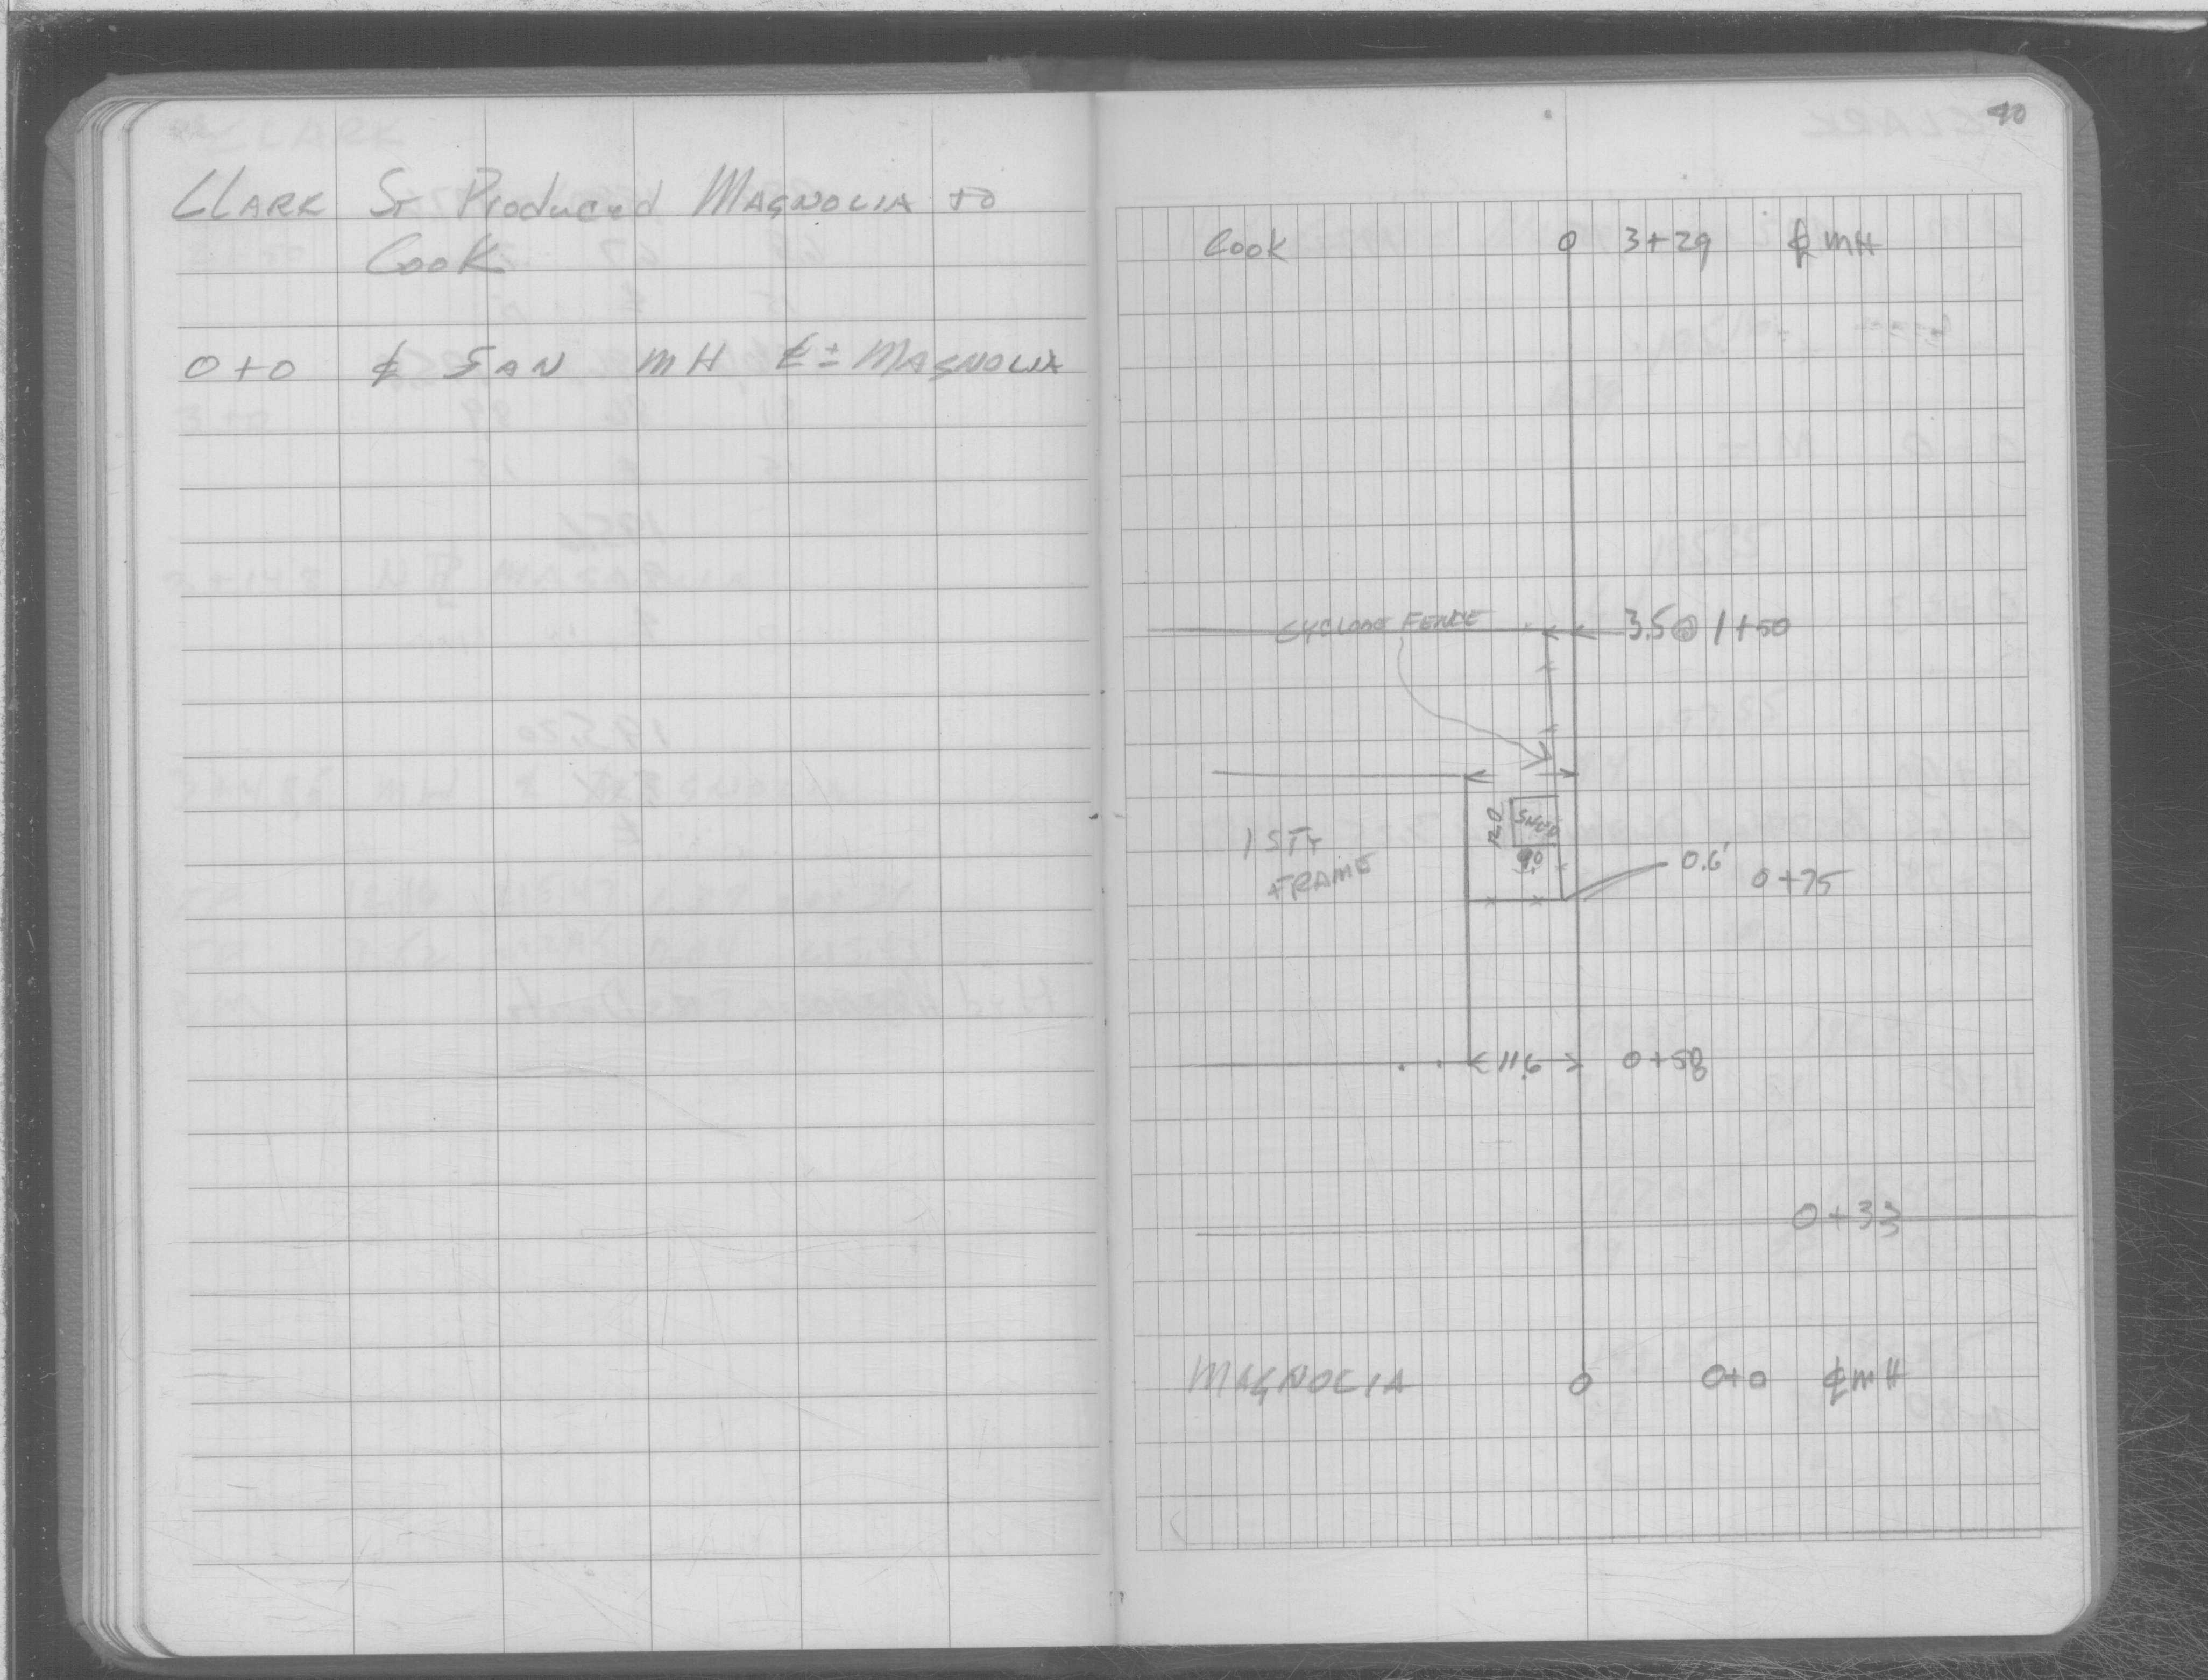 CLARK ST Produced MAGNOLIA to
COOK
0+0 ₵ SAN MH ₵± MAGNOLIA
40
Cook 0 3+29 ₵ MH
CYCLONE FENCE 3.5 @ 1+50
12.0 SHED
1 STY
FRAME
9.0
0.6' 0+75
11.6 0+58
0+33
MAGNOLIA 0 0+0 ₵ MH